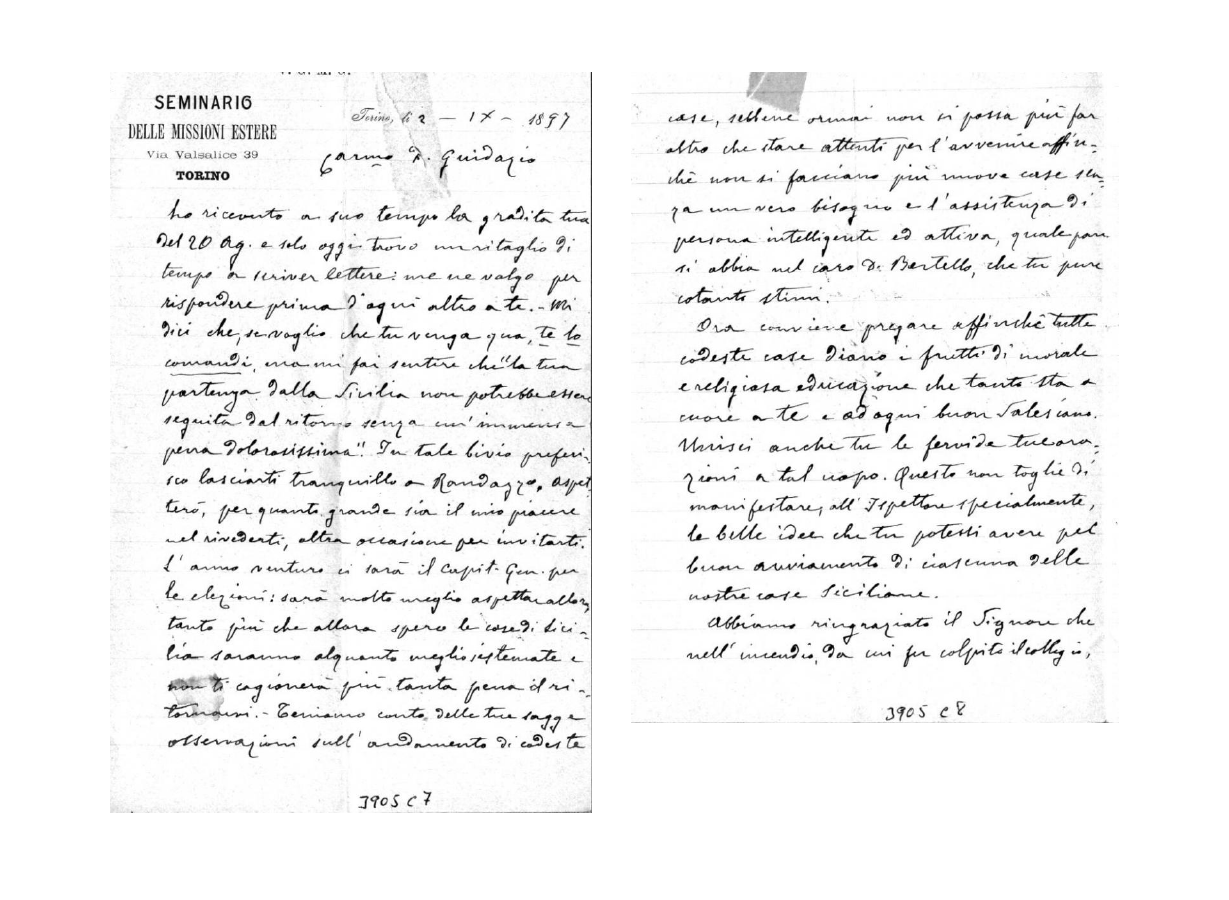 V. G. M. G.
SEMINARIO
DELLE MISSIONI ESTERE
Via Valsalice 39
TORINO
Torino, li 2 - IX - 1897
Carmo D. Guidazio
ho ricevuto a suo tempo la gradita tua
del 20 Ag. e solo oggi trovo un ritaglio di
tempo a scriver lettere: me ne valgo per
rispondere prima d'ogni altro a te. - Mi
dici che, se voglio che tu venga qua, te lo
comandi, ma mi fai sentire che "la tua
partenza dalla Sicilia non potrebbe essere
seguita dal ritorno senza un'immensa
pena dolorosissima". In tale bivio preferi-
sco lasciarti tranquillo a Randazzo. Aspet-
terò, per quanto grande sia il mio piacere
nel rivederti, altra occasione per invitarti.
L'anno venturo ci sarà il Capit. Gen. per
le elezioni: sarà molto meglio aspettar allora,
tanto più che allora spero le case di Sici-
lia saranno alquanto meglio sistemate e
non ti cagionerà più tanta pena il ri-
tornarvi. - Teniamo conto delle tue sagge
osservazioni sull'andamento di codeste
3905 C7
case, sebbene ormai non si possa più far
altro che stare attenti per l'avvenire affin-
chè non si facciano più nuove case sen-
za un vero bisogno e l'assistenza di
persona intelligente ed attiva, quale pare
si abbia nel caro D. Bertello, che tu pure
cotanto stimi.
Ora conviene pregare affinchè tutte
codeste case diano i frutti di morale
e religiosa educazione che tanto sta a
cuore a te e ad ogni buon Salesiano.
Unisci anche tu le fervide tue ora-
zioni a tal uopo. Questo non toglie di
manifestare, all'Ispettore specialmente,
le belle idee che tu potessi avere pel
buon avviamento di ciascuna delle
nostre case Siciliane.
Abbiamo ringraziato il Signore che
nell'incendio, da cui fu colpito il collegio,
3905 C8